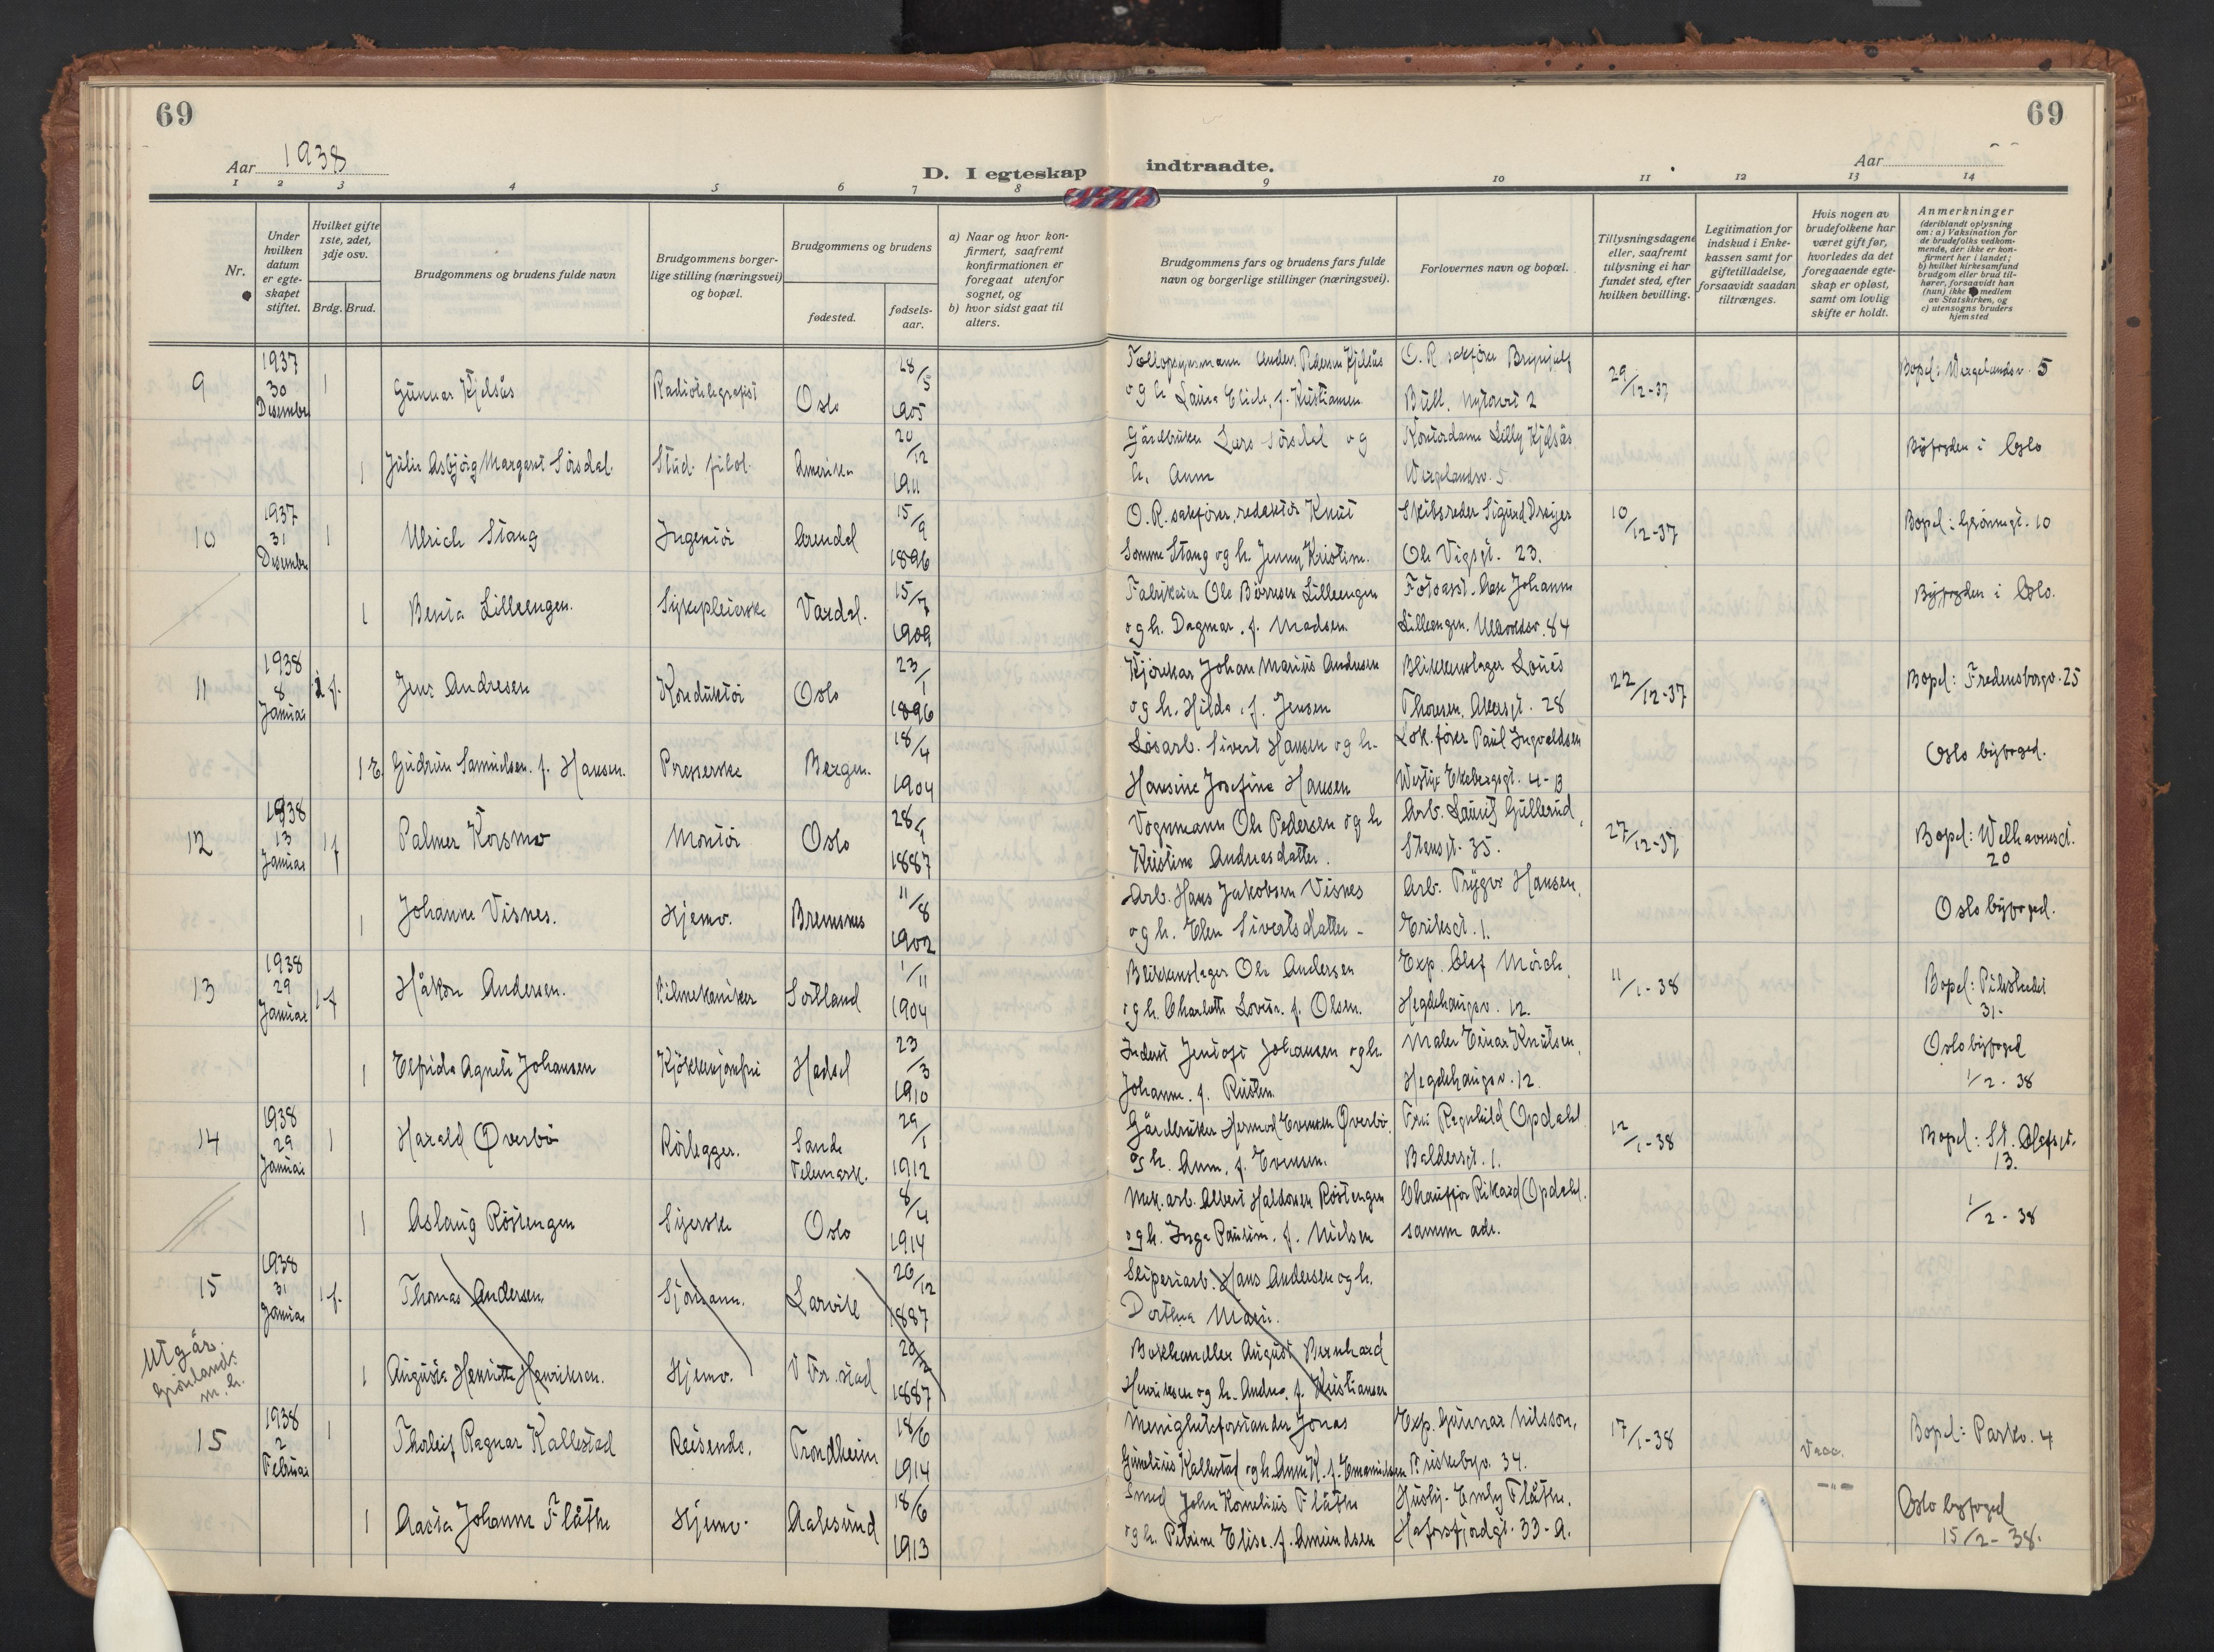 69
69
Aar 1938
D. I egteskap indtraadte.
Aar
1 2 3 4 5 6 7 8 9 10 11 12 13 14
Nr.
Under hvilken datum er egteskapet stiftet.
Hvilket gifte 1ste, 2det, 3dje osv.
Brdg. Brud.
Brudgommens og brudens fulde navn
Brudgommens borgerlige stilling (næringsvei) og bopæl.
Brudgommens og brudens
fødested.
fødselsaar.
a) Naar og hvor konfirmert, saafremt konfirmationen er foregaat utenfor sognet, og
b) hvor sidst gaat til alters.
Brudgommens fars og brudens fars fulde navn og borgerlige stillinger (næringsvei).
Forlovernes navn og bopæl.
Tillysningsdagene eller, saafremt tillysning ei har fundet sted, efter hvilken bevilling.
Legitimation for indskud i Enkekassen samt for giftetilladelse, forsaavidt saadan tiltrænges.
Hvis nogen av brudefolkene har været gift før, hvorledes da det foregaaende egteskap er opløst, samt om lovlig skifte er holdt.
Anmerkninger
(deriblandt oplysning om: a) Vaksination for de brudefolks vedkommende, der ikke er konfirmert her i landet; b) hvilket kirkesamfund brudgom eller brud tilhører, forsaavidt han (hun) ikke er medlem av Statskirken, og c) utensogns bruders hjemsted
9 1937 30 Desember 1 Gunnar Kjelsås Radiotelegrafist Oslo 28/5 1905
og h. Laura Elise, f. Kristiansen
O. R. sakfører Brynjulf
Bull. Nytorvet 2
29/12-37
Bopel: Wergelandsv. 5
1 Julie Asbjörg Margaret Sörsdal. Stud. filol. Amerika 20/12 1911
Gårdbruker Lars Sörsdal og
h. Anna
Kontordame Lilly Kjelsås
Wergelandsv. 5
Byfogden i Oslo
10 1937 31 Desember 1 Ulrich Stang Ingeniör Arendal 15/9 1896
O. R. sakförer, redaktör Knut
Somme Stang og h. Jenny Kristine.
Skibsreder Sigurd
Ole Vigsgt. 23.
10/12-37
Bopel: Grönnegt. 10
1 Benta Lilleengen. Sykepleierske Vardal. 15/7 1909
Fabrikeier Ole Börresen Lilleengen
og h. Dagmar. f. Madsen.
Fotoasst. Åse Johanne
Lilleengen. Ullevålsv. 84
Byfogden i Oslo.
11 1938 8 Januar f. Jens Andresen Konduktör Oslo 23/1 1896
Kjörekar Johan Marius Andresen
og h. Hilda. f. Jensen
Blikkenslager Louis
Thoresen. Akersgt. 28
22/12-37
Bopel: Fredensborgv. 25
1 Gudrun Samuelsen. f. Hansen. Presserske Bergen. 18/4 1904
Lösarb. Sivert Hansen og h.
Hansine Josefine Hansen
Lok. förer Paul Ingvaldsen
Vestre Ekebergsgt. 4-B
Oslo byfoged.
12 1938 13 Januar 1 f Palmer Korsmo Montör Oslo 28/1 1887
Vognmann Ole Pedersen og h
Kristine Andreasdatter.
Arb. Laurits Gullerud,
Stensgt. 35.
27/12-37
Bopel: Welhavensgt. 20
1 Johanne Visnes. Hjemv. Bremsnes 11/8 1902
Arb. Hans Jakobsen Visnes
og h. Elen Sivertsdatter
Arb. Trygve Hansen,
Eriksgt. 1.
Oslo byfoged.
13 1938 29 Januar 1 f Håkon Andersen. Bilmekaniker Sortland 1/11 1904
Blikkenslager Ole Andersen
og h. Charlotte Lovise. f. Olsen.
Exp. Olaf Mörch
Hegdehaugsv. 12.
11/1-38
Bopel: Pilestredet 31.
1 Elfrida Agnete Johansen Kjökkenjomfru Hadsel 23/3 1910
Inderst Jentoft Johansen og h.
Johanne. f. Rusten.
Maler Einar Knutsen,
Hegdehaugsv. 12.
Oslo byfoged
1/2-38
14 1938 29 Januar 1 Harald Överbö Rörlegger. Sande Telemark. 29/1 1912
Gårdbruker Hermod Evensen Överbö
og h. Anne, f. Evensen.
Fru Ragnhild Opdahl
Baldersgt. 1.
12/1-38
Bopel: St. Olafsgt. 13.
1 Aslaug Röstengen Syerske Oslo 8/4 1914
Mek. arb. Albert Haldorsen Röstengen
og h. Inga Pauline. f. Nielsen
Chaufför Rikard Opdahl.
samme adr.
1/2-38
15 1938 31 Januar 1 f. Thomas Andersen. Sjömann. Larvik 26/12 1887
Sliperiarb. Hans Andersen og h.
Dorthea Marie.
Utgår.
Grönlands
m. h.
1 Augusta Henriette Henriksen. Hjemv. Fr. stad 1887
Bokhandler August Bernhard
Henriksen og h. Andrea. f. Kristiansen
15 1938 2 Februar 1 Thorleif Ragnar Kallestad Reisende. Trondheim 18/6 1914
Menighetsforstander Jonas
Kallestad og h. Anne K. f.
Exp. Gunnar Nilsson,
Briskebyv. 34.
17/1-38
Vacc.
Bopel: Parkv. 4
1 Aasta Johanne Flåthe Hjemv. Aalesund 18/6 1913
Smed John Kornelius Flåthe
og h. Petrine Elise. f. Amundsen
Husby. Emly Flåthe.
Hafrsfjordgt. 33-A.
-"-
Oslo byfoged
15/2-38.